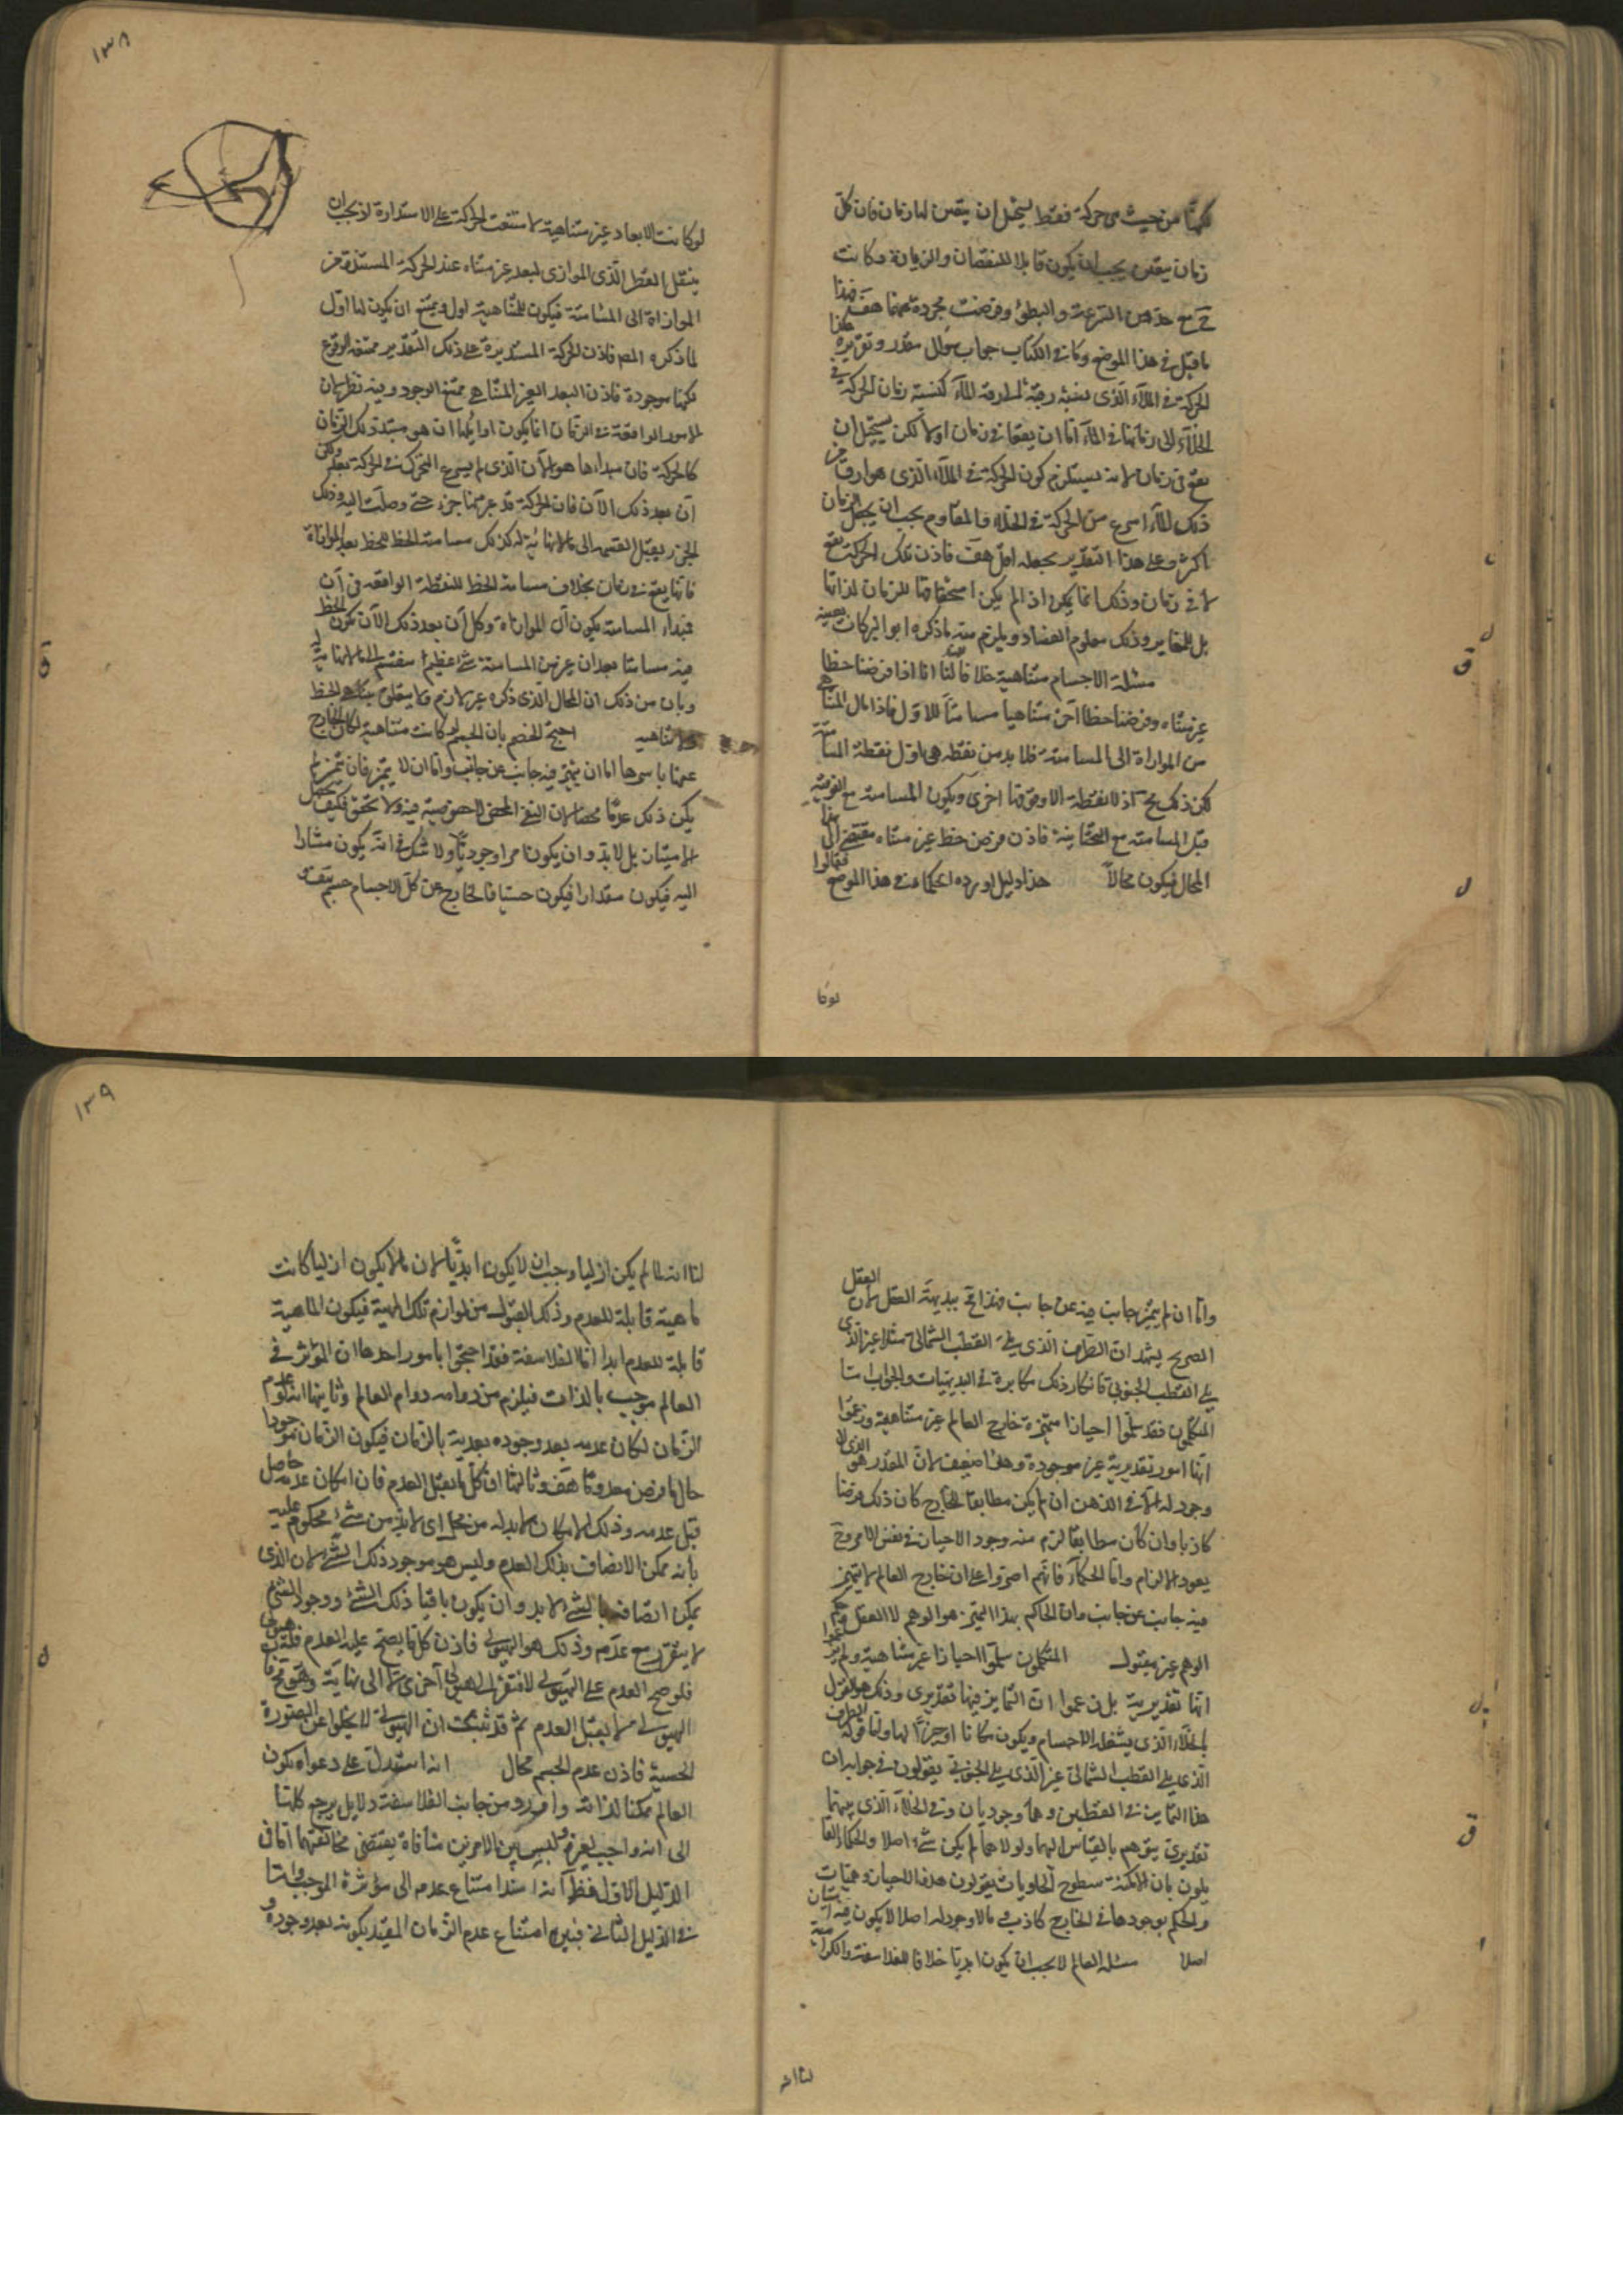 ١٣٨
لكنها من حيث هي حركة فقط يستحيل ان يتعين لها زمان فان كل
زمان يتعين يجب ان يكون قابلا للنقصان والزيادة وكانت
ح مع حد من السرعة والبطؤ وفرضت مجردة عنهما هف فهذا
ما قيل في هذا الموضع وكان في الكتاب جواب سؤال مقدر وتقريره هذا
الحركة في الملآء الذي نسبة رقته لرقة الملآء كنسبة زمان الحركة في
الخلآء الى زمانها في الملآء اما ان يقعا في زمان اولا لكن يستحيل ان
يقع في زمان لانه يستلزم كون الحركة في الملآء الذي هو ارق من
ذلك الملآء اسرع من الحركة في الخلاء والمقاوم يجب ان يجعل الزمان
اكثر وعلى هذا التقدير يجعله اقل هف فاذن تلك الحركة تقع
لا في زمان وذلك انما يكون اذا لم يكن استحقاقها للزمان لذاتها
بل للمغاير وذلك معلوم الفساد ويلزم منه ما ذكره ابو البركات بعينه
مسئلة الاجسام متناهية خلافا لنا انا اذا فرضنا خطا
غير متناه وفرضنا خطا آخر متناهيا مسامتا للاول فاذا مال المتناهي
من الموازاة الى المسامتة فلا بد من نقطة هي اول نقطة المسامتة
لكن ذلك مح اذ لا نقطة الا وفوقها اخرى ويكون المسامتة مع الفوقية
قبل المسامتة مع التحتانية فاذن فرض خط غير متناه مفضي الى هذا
المحال فيكون محالا هذا دليل اورده الحكماء في هذا الموضع فقالوا
لوكا
لو كانت الابعاد غير متناهية لامتنعت الحركة على الاستدارة لانه يجب ان
ينتقل القطر الذي الموازى لبعد غير متناه عند الحركة المستديرة من
الموازاة الى المسامتة فيكون للمتناهية اول ويمتنع ان يكون لها اول
لما ذكره المصـ فاذن الحركة المستديرة على ذلك التقدير ممتنعة الوقوع
لكنها موجودة فاذن البعد الغير المتناهي ممتنع الوجود وفيه نظر لان
الامور الواقعة في الزمان انما يكون اوائلها ان هي مبتدأ ذلك الزمان
كالحركة فان مبدأها هو الآن الذي لم يسرع المتحرك في الحركة بعد وكل
آن بعد ذلك الآن فان الحركة قد جر منها جزء حتى وصلت اليه وذلك
الجزء يقبل القسمة الى ما لا نهاية له كذلك مسامتة الخط للخط بعد الموازاة
فانها يقع في زمان بخلاف مسامتة الخط للنقطة الواقعة في آن
فمبدأ المسامتة يكون آن الموازاة وكل آن بعد ذلك الآن يكون الخط
فيه مسامتا بعد ان عن من المسامتة شئ اعظم منقسم الى ما لا نهاية له
وبان من ذلك ان المحال الذي ذكره غير لازم وما يتعلق بتناهي الخط
ولا تناهيه احتج الخصم بان الجسم لو كانت متناهية لكان الخارج
عنها باسرها اما ان يتميز فيه جانب عن جانب واما ان لا يتميز فان تميز لم
يكن ذلك عدما محضا لان النفي المحض لا خصوصية فيه ولا تحقق فكيف يحصل
الامتياز بل لابد وان يكون امرا وجوديا ولا شك في انه يكون مشارا
اليه فيكون مقدارا فيكون جسما فالخارج عن كل الاجسام جسم هف
١٣٩
واما ان لم يتميز جانب فيه عن جانب فهذا مح ببديهة العقل لان العقل
الصريح يشهد ان الطرف الذي يلى القطب الشمالي مثلا غير الذي
يلى القطب الجنوبي فانكار ذلك مكابرة في البديهيات والجواب اما
المتكلمون فقد سلموا احيازا متميزة خارج العالم غير متناهية وزعموا
انها امور تقديرية غير موجودة وهذا ضعيف لان المقدر هو الذي لا
وجود له الا في الذهن ان لم يكن مطابقا للخارج كان ذلك فرضا
كاذبا وان كان مطابقا لزم منه وجود الاحياز في نفس الامر وح
يعود الالزام واما الحكمآء فانهم اصروا على ان خارج العالم لا يتميز
فيه جانب عن جانب وان الحاكم بهذا التميز هو الوهم لا العقل وحكم
الوهم غير مقبول المتكلمون سلموا احيازا غير متناهية ولم يزعموا
انها تقديرية بل زعموا ان التمايز فيها تقديرى وذلك هو القول
بالخلآء الذي يشغله الاجسام ويكون مكانا او حيزا لها واما قوله الطرف
الذي يلى القطب الشمالي غير الذي يلى الجنوبي يقولون في جوابه ان
هذا التمايز في القطبين وهما وجوديان وفي الخلاء الذي بينهما
تقديرى يتوهم بالقياس اليهما ولولا هما لم يكن شئ اصلا والحكماء القا
يلون بان الامكنة سطوح الحاويات يقولون هذه الاحياز وهميات
والحكم بوجودها في الخارج كاذب وما لا وجود له اصلا لا يكون فيه امتياز
اصلا مسئلة العالم لا يجب ان يكون ابديا خلافا للفلاسفة والكرامية
لنا انه
لنا انه لما لم يكن ازليا وجب ان لا يكون ابديا لان ما لا يكون ازليا كانت
ماهيته قابلة للعدم وذلك القبول من لوازم تلك الماهية فيكون الماهية
قابلة للعدم ابدا اما الفلاسفة فقد احتجوا بامور احدها ان المؤثر في
العالم موجب بالذات فيلزم من دوامه دوام العالم وثانيها انه لو عدم
الزمان لكان عدمه بعد وجوده بعدية بالزمان فيكون الزمان موجودا
حال ما فرض معدوما هف وثالثها ان كل ما يقبل العدم فان امكان عدمه حاصل
قبل عدمه وذلك الامكان لابد له من محل اى لابد من شئ محكوم عليه
بانه ممكن الاتصاف بذلك العدم وليس هو موجود ذلك الشئ لان الذي
يمكن اتصافه بالشئ لابد وان يكون باقيا ذلك الشئ ووجود الشئ
لا يتقرر مع عدمه وذلك هو الهيولى فاذن كل ما يصح عليه العدم فله هيولى
فلو صح العدم على الهيولى لافتقر الى هيولى آخرى لا الى نهاية وهو مح فاذن
الهيولى لا يقبل العدم ثم قد ثبت ان الهيولى لا يخلوا عن الصورة
الجسمية فاذن عدم الجسم محال انه استدل على دعواه بكون
العالم ممكنا لذاته وما اورد من جانب الفلاسفة دلايل يرجع كلها
الى انه واجب لغيره وليس بين الامرين منافاة يقتضى مخالفتهما اما في
الدليل الاول فظ انه اسند امتناع عدمه الى مؤثره الموجب واما
في الدليل الثاني فبين امتناع عدم الزمان المقيد بكونه بعد وجوده و